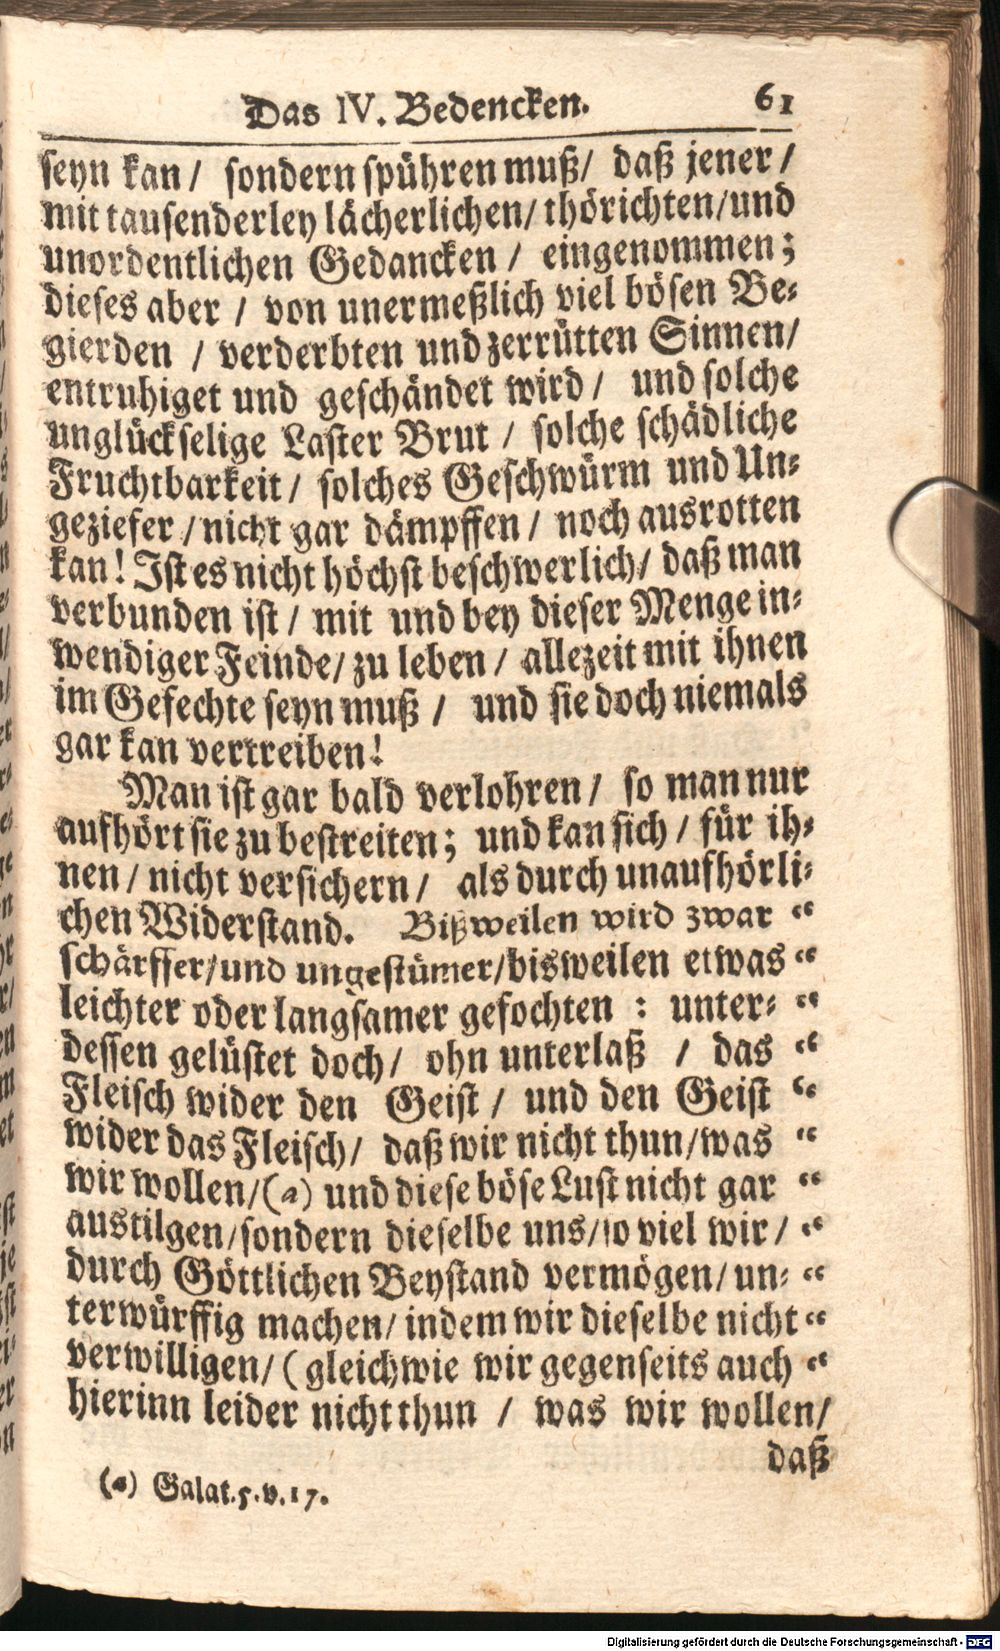 Das IV. Bedencken. 61
seyn kan / sondern spühren muß / daß jener /
mit tausenderley lächerlichen / thörichten / und
unordentlichen Gedancken / eingenommen;
dieses aber / von unermeßlich viel bösen Be-
gierden / verderbten und zerrütten Sinnen /
entruhiget und geschändet wird / und solche
unglückselige Laster Brut / solche schädliche
Fruchtbarkeit / solches Geschwürm und Un-
geziefer / nicht gar dämpffen / noch ausrotten
kan! Ist es nicht höchst beschwerlich / daß man
verbunden ist / mit und bey dieser Menge in-
wendiger Feinde / zu leben / allezeit mit ihnen
im Gefechte seyn muß / und sie doch niemals
gar kan vertreiben!
Man ist gar bald verlohren / so man nur
aufhört sie zu bestreiten; und kan sich / für ih-
nen / nicht versichern / als durch unaufhörli-
chen Widerstand. Bißweilen wird zwar “
schärffer / und ungestümer / bisweilen etwas “
leichter oder langsamer gefochten : unter- “
dessen gelüstet doch / ohn unterlaß / das “
Fleisch wider den Geist / und den Geist “
wider das Fleisch / daß wir nicht thun / was “
wir wollen / (a) und diese böse Lust nicht gar “
austilgen / sondern dieselbe uns / so viel wir / “
durch Göttlichen Beystand vermögen / un- “
terwürffig machen / indem wir dieselbe nicht “
verwilligen / ( gleichwie wir gegenseits auch “
hierinn leider nicht thun / was wir wollen /
daß
(a) Galat. 5. v. 17.
Digitalisierung gefördert durch die Deutsche Forschungsgemeinschaft - DFG